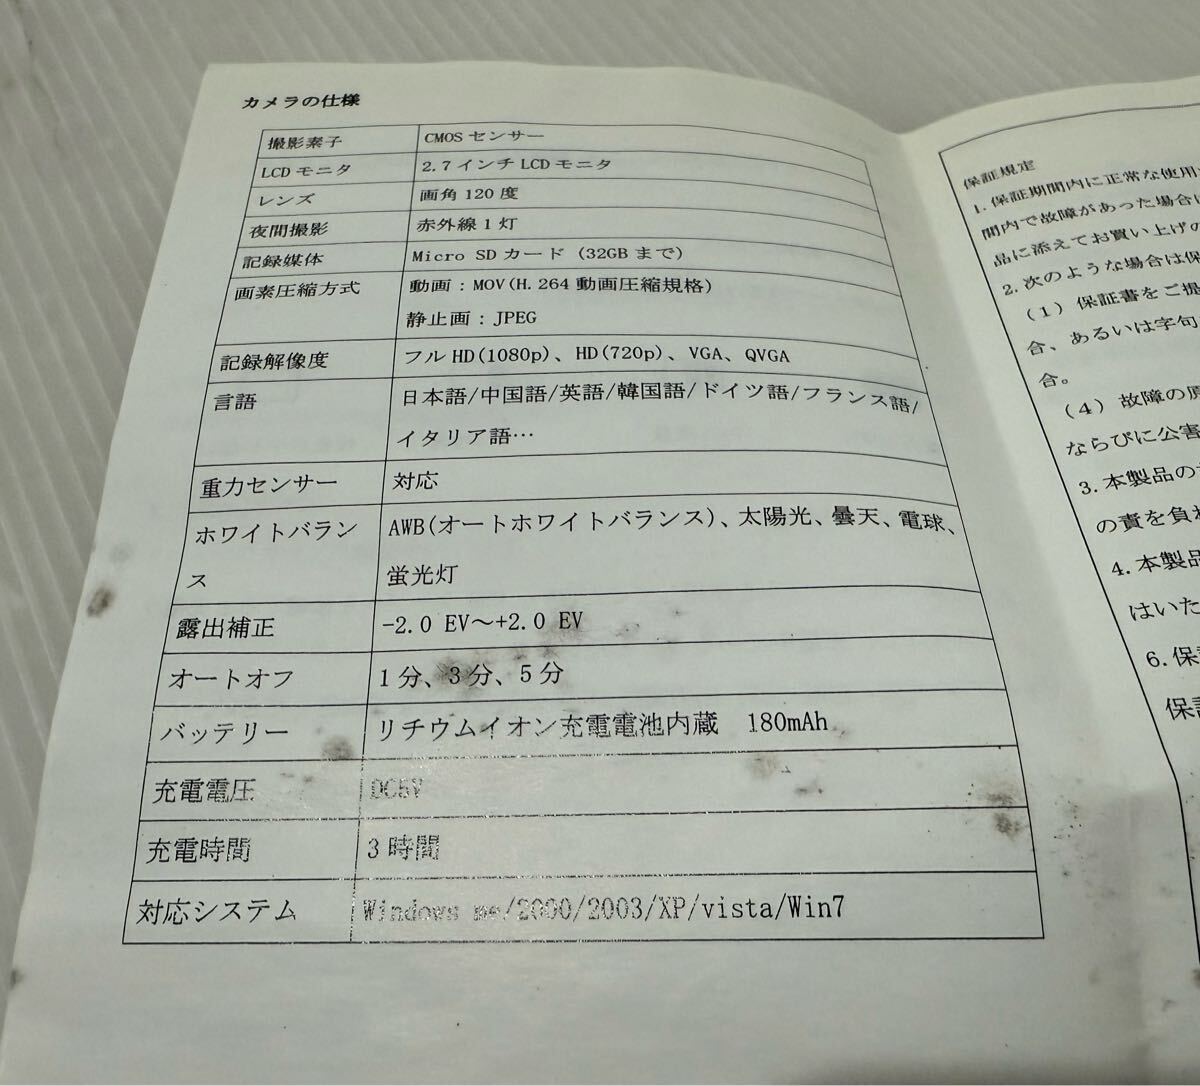 カメラの仕様
撮影素子 CMOS センサー
LCD モニタ 2.7 インチ LCD モニタ
レンズ 画角 120 度
夜間撮影 赤外線 1 灯
記録媒体 Micro SD カード (32GB まで)
画素圧縮方式 動画:MOV(H.264 動画圧縮規格)
静止画:JPEG
記録解像度 フル HD(1080p)、HD(720p)、VGA、QVGA
言語 日本語/中国語/英語/韓国語/ドイツ語/フランス語/
イタリア語…
重力センサー 対応
ホワイトバラン AWB(オートホワイトバランス)、太陽光、曇天、電球、
ス 蛍光灯
露出補正 -2.0 EV～+2.0 EV
オートオフ 1分、3分、5分
バッテリー リチウムイオン充電電池内蔵 180mAh
充電電圧 DC5V
充電時間 3 時間
対応システム Windows me/2000/2003/XP/vista/Win7
保証規定
1. 保証期間内に正常な使用
間内で故障があった場合に
品に添えてお買い上げの
2. 次のような場合は保
(1) 保証書をご提
合、あるいは字句
合。
(4) 故障の原
ならびに公害
3. 本製品の
の責を負
4. 本製品
はいた
6. 保
保